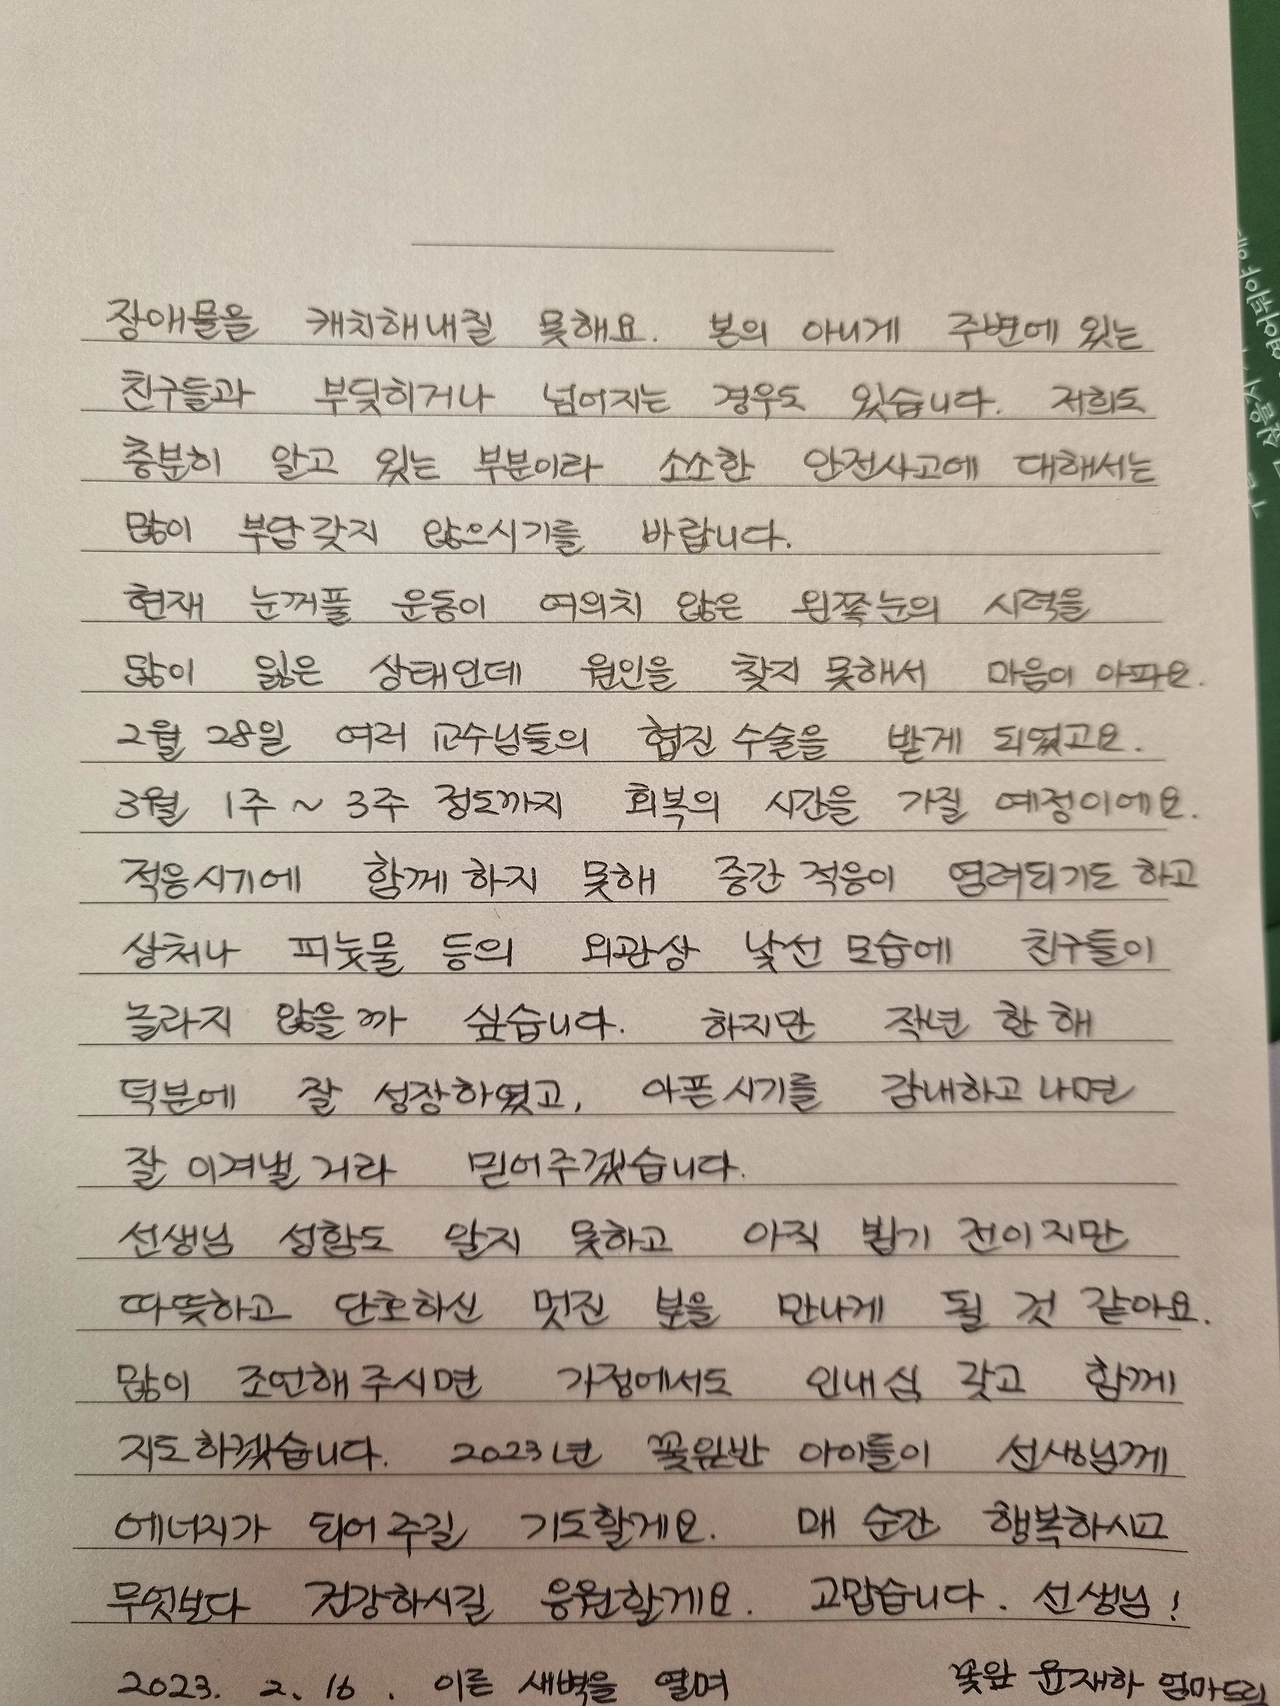 장애물을 캐치해내질 못해요. 본의 아니게 주변에 있는
친구들과 부딪히거나 넘어지는 경우도 있습니다. 저희도
충분히 알고 있는 부분이라 소소한 안전사고에 대해서는
많이 부담갖지 않으시기를 바랍니다.
현재 눈꺼풀 운동이 여의치 않은 왼쪽눈의 시력을
많이 잃은 상태인데 원인을 찾지 못해서 마음이 아파요.
2월 28일 여러 교수님들의 협진 수술을 받게 되었고요.
3월 1주 ~ 3주 정도까지 회복의 시간을 가질 예정이에요.
적응시기에 함께 하지 못해 중간 적응이 염려되기도 하고
상처나 피눈물 등의 외관상 낯선 모습에 친구들이
놀라지 않을까 싶습니다. 하지만 작년 한 해
덕분에 잘 성장하였고, 아픈 시기를 감내하고 나면
잘 이겨낼 거라 믿어주겠습니다.
선생님 성함도 알지 못하고 아직 뵙기 전이지만
따뜻하고 단호하신 멋진 분을 만나게 될 것 같아요.
많이 조언해 주시면 가정에서도 인내심 갖고 함께
지도하겠습니다. 2023년 꽃잎반 아이들이 선생님께
에너지가 되어 주길 기도할게요. 매 순간 행복하시고
무엇보다 건강하시길 응원할게요. 고맙습니다. 선생님!
2023. 2. 16. 이른 새벽을 열며 꽃잎 윤재하 엄마드림